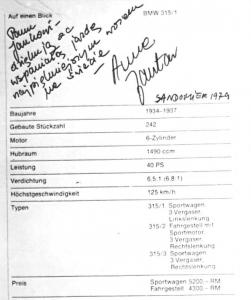 Auf einen Blick
BMW 315/1
Panu
dziękuję za
wspaniałą jazdę
na świecie
Anna
Jantar
SANDOMIERZ 1979
Baujahre
1934-1937
Gebaute Stückzahl
242
Motor
6-Zylinder
Hubraum
1490 ccm
Leistung
40 PS
Verdichtung
6,5:1 (6,8:1)
Höchstgeschwindigkeit
125 km/h
Typen
315/1 Sportwagen,
3 Vergaser,
Linkslenkung
315/2 Fahrgestell mit
Sportmotor,
3 Vergaser,
Rechtslenkung
315/3 Sportwagen,
3 Vergaser,
Rechtslenkung
Preis
Sportwagen 5200 - RM
Fahrgestell 4300 - RM